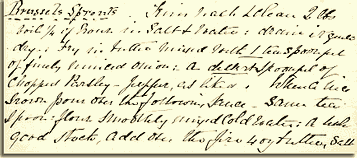 Brussels Sprouts. Trim wash & clean 2 lbs
boil ½ hour in Salt & Water: drain & quite
dry: Fry in butter mixed with 1 teaspoonful
of finely minced onion: a dessertspoonful of
Chopped Parsley - Pepper, as liked. When a nice
brown pour over the following sauce - same tea
spoon: flour smoothly mixed Cold Water: a little
good stock, add over the fire 4 oz butter, Salt